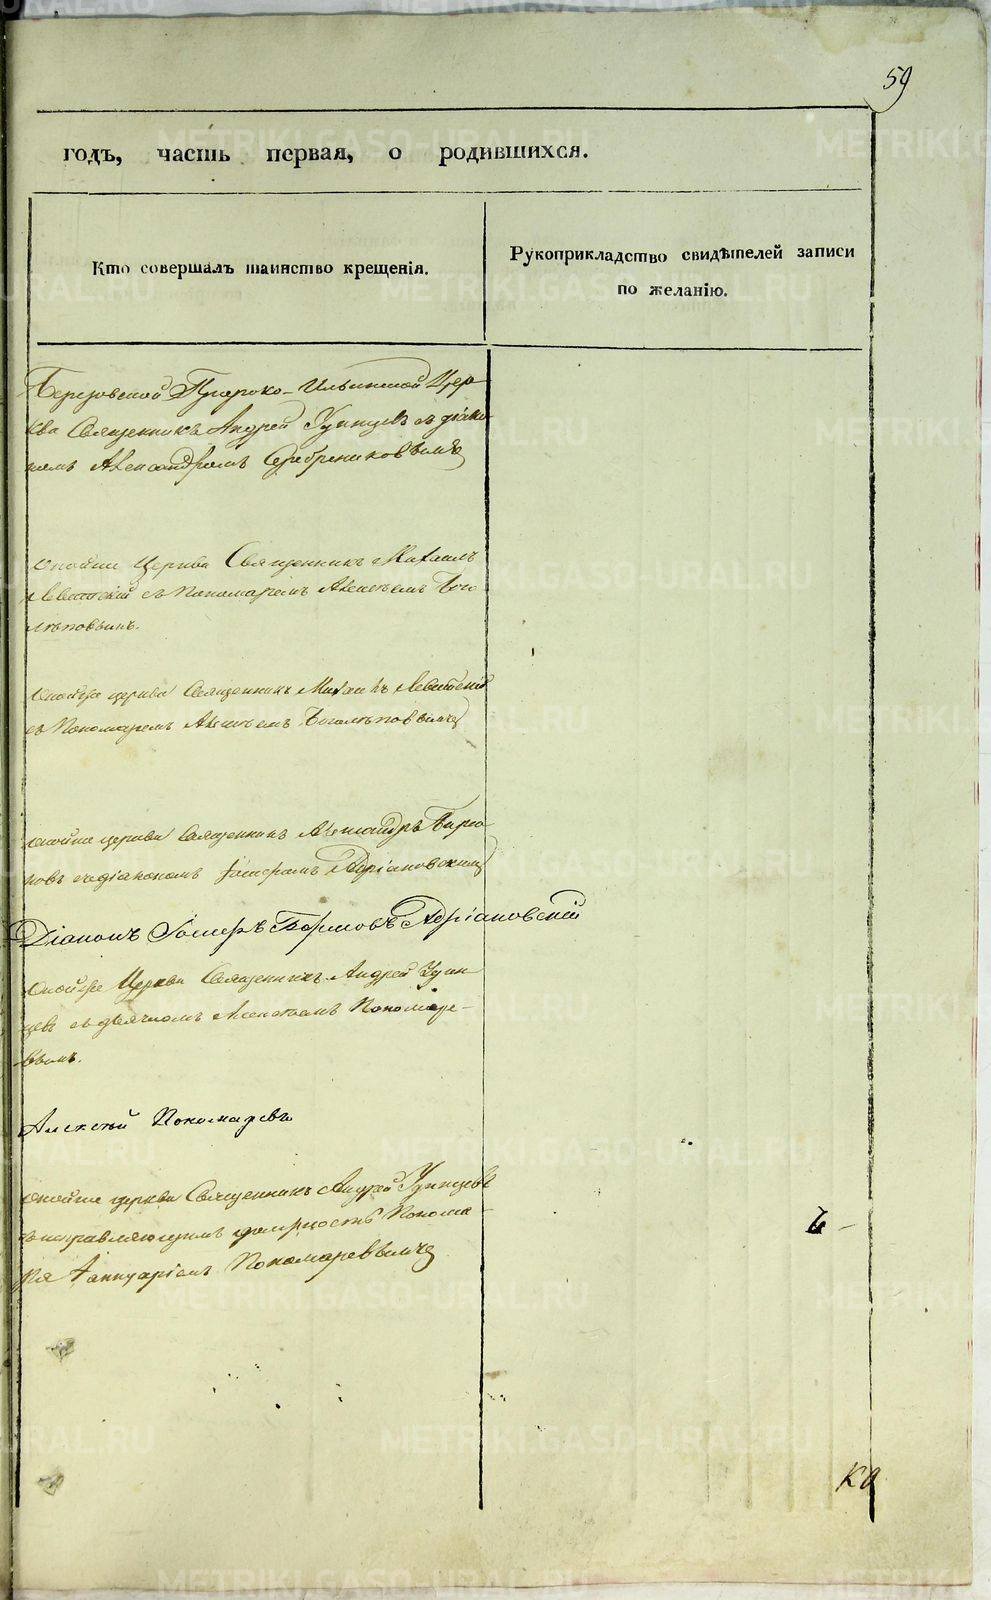 59
годъ, часть первая, о родившихся.
Кто совершалъ таинство крещенія.
Рукоприкладство свидѣтелей записи
по желанію.
Березовской Пророко-Ильинской Цер-
кви Священникъ Андрей Удинцевъ съ діако-
номъ Александромъ Серебрениковымъ
оной же Церкви Священникъ Михаилъ
Левитскій съ Пономаремъ Алексѣемъ Бого-
лѣповымъ.
оной же церкви Священникъ Михаилъ Левитскій
съ Пономаремъ Алексѣемъ Боголѣповымъ
оной же церкви Священникъ Александръ
діакономъ Адріановскимъ
Діаконъ Адріановскій
оной же Церкви Священникъ Андрей Удин-
цевъ съ дьячкомъ Алексѣемъ Пономаре-
вымъ.
Алексѣй Пономаревъ
оной же церкви Священникъ Андрей Удинцевъ
съ исправляющимъ должность Понома-
ря Іаннуаріемъ Пономаревымъ
METRIKI.GASO-URAL.RU